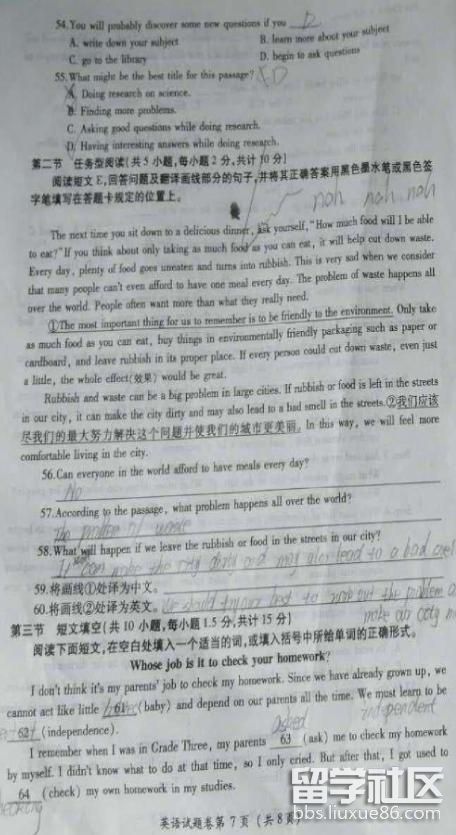 54. You will probably discover some new questions if you D
A. write down your subject B. learn more about your subject
C. go to the library D. begin to ask questions
55. What might be the best title for this passage? D
A. Doing research on science.
B. Finding more problems.
C. Asking good questions while doing research.
D. Having interesting answers while doing research.
第二节 任务型阅读(共5小题,每小题2分,共计10分)
阅读短文E,回答问题及翻译画线部分的句子,并将其正确答案用黑色墨水笔或黑色签
字笔填写在答题卡规定的位置上。
nah nah nah
The next time you sit down to a delicious dinner, ask yourself, "How much food will I be able
to eat?" If you think about only taking as much food as you can eat, it will help cut down waste.
Every day, plenty of food goes uneaten and turns into rubbish. This is very sad when we consider
that many people can't even afford to have one meal every day. The problem of waste happens all
over the world. People often want more than what they really need.
①The most important thing for us to remember is to be friendly to the environment. Only take
as much food as you can eat, buy things in environmentally friendly packaging such as paper or
cardboard, and leave rubbish in its proper place. If every person could cut down waste, even just
a little, the whole effect(效果) would be great.
Rubbish and waste can be a big problem in large cities. If rubbish or food is left in the streets
in our city, it can make the city dirty and may also lead to a bad smell in the streets.②我们应该
尽我们的最大努力解决这个问题并使我们的城市更美丽. In this way, we will feel more
comfortable living in the city.
56. Can everyone in the world afford to have meals every day?
No
57. According to the passage, what problem happens all over the world?
The problem of waste
58. What will happen if we leave the rubbish or food in the streets in our city?
It can make the city dirty and may also lead to a bad
59. 将画线①处译为中文。
60. 将画线②处译为英文。We should try our best to work out the problem
make our city
第三节 短文填空(共10小题,每小题1.5分,共计15分)
阅读下面短文,在空白处填入一个适当的词,或填入括号中所给单词的正确形式。
Whose job is it to check your homework?
I don't think it's my parents' job to check my homework. Since we have already grown up, we
cannot act like little 61 (baby) and depend on our parents all the time. We must learn to be
62 (independence). independent
asked
I remember when I was in Grade Three, my parents 63 (ask) me to check my homework
by myself. I didn't know what to do at that time, so I only cried. But after that, I got used to
64 (check) my own homework in my studies.
英语试题卷第7页(共8页)
留学社区
bbs.liuxue86.com